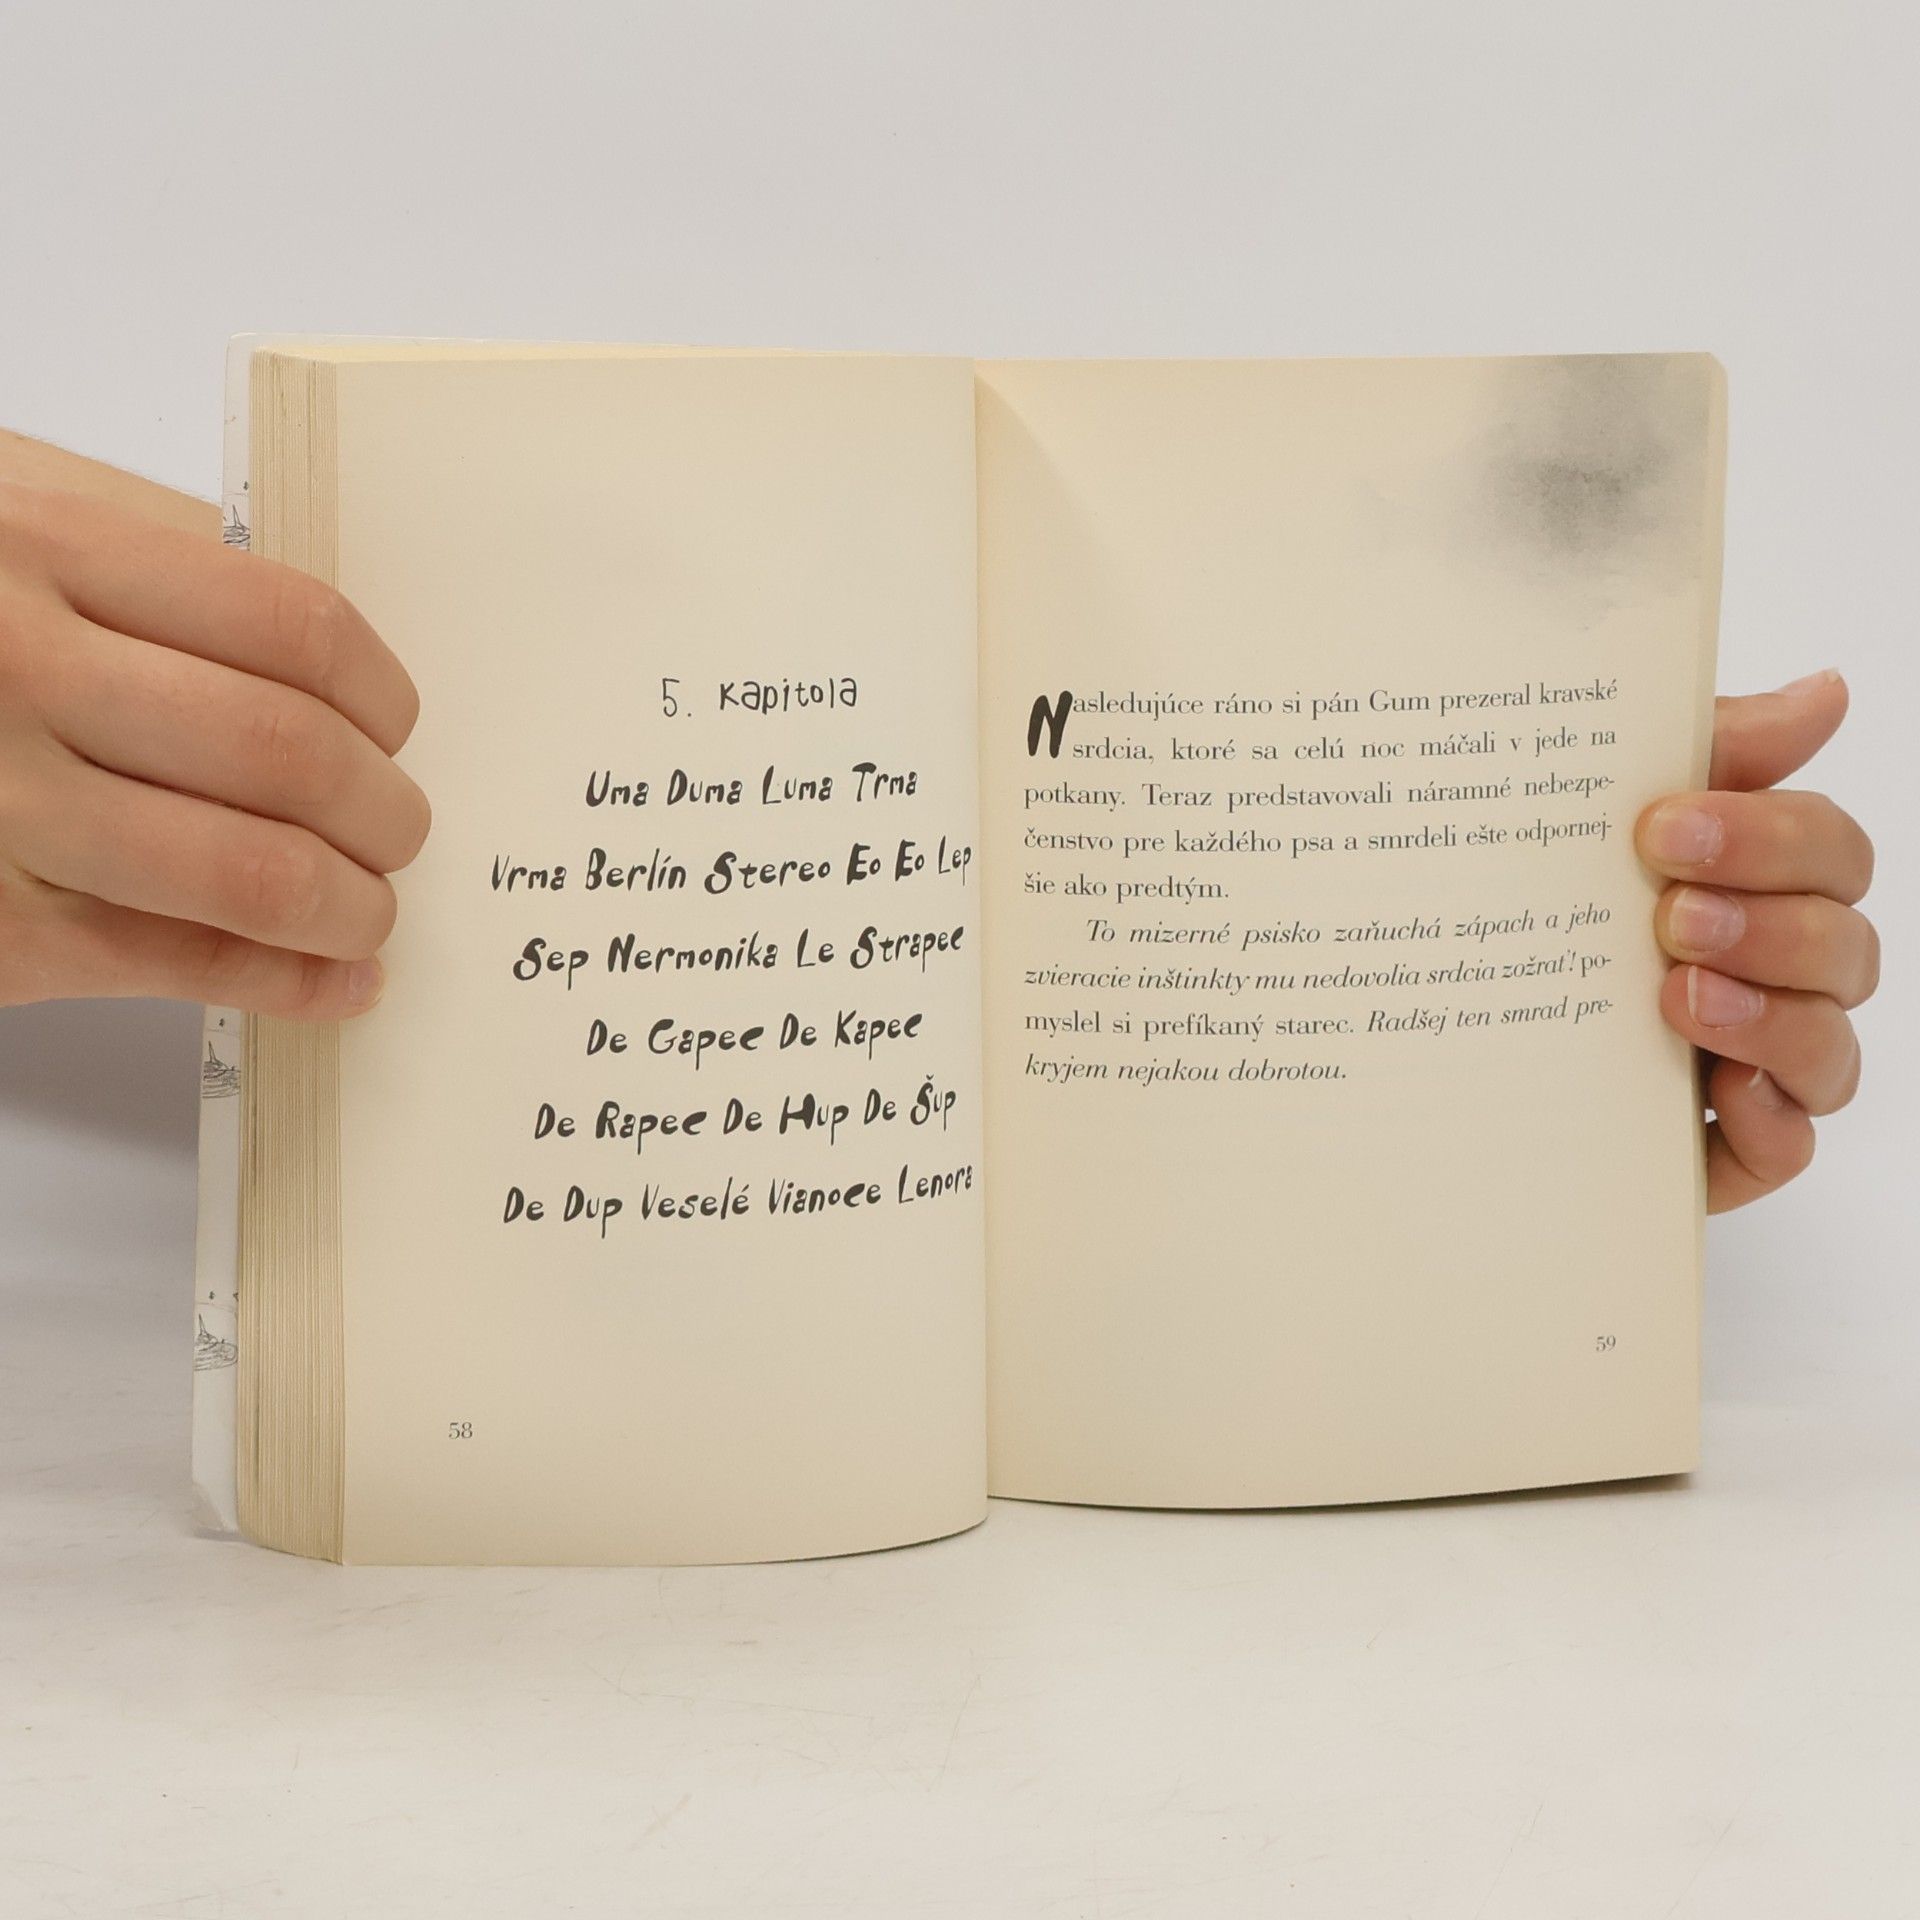 5. Kapitola
Uma Duma Luma Trma
Vrma Berlín Stereo Eo Eo Lep
Sep Nermonika Le Strapec
De Gapec De Kapec
De Rapec De Hup De Šup
De Dup Veselé Vianoce Lenora
58
Nasledujúce ráno si pán Gum prezeral kravské
srdcia, ktoré sa celú noc máčali v jede na
potkany. Teraz predstavovali náramné nebezpe-
čenstvo pre každého psa a smrdeli ešte odpornej-
šie ako predtým.
To mizerné psisko zaňuchá zápach a jeho
zvieracie inštinkty mu nedovolia srdcia zožrať! po-
myslel si prefíkaný starec. Radšej ten smrad pre-
kryjem nejakou dobrotou.
59